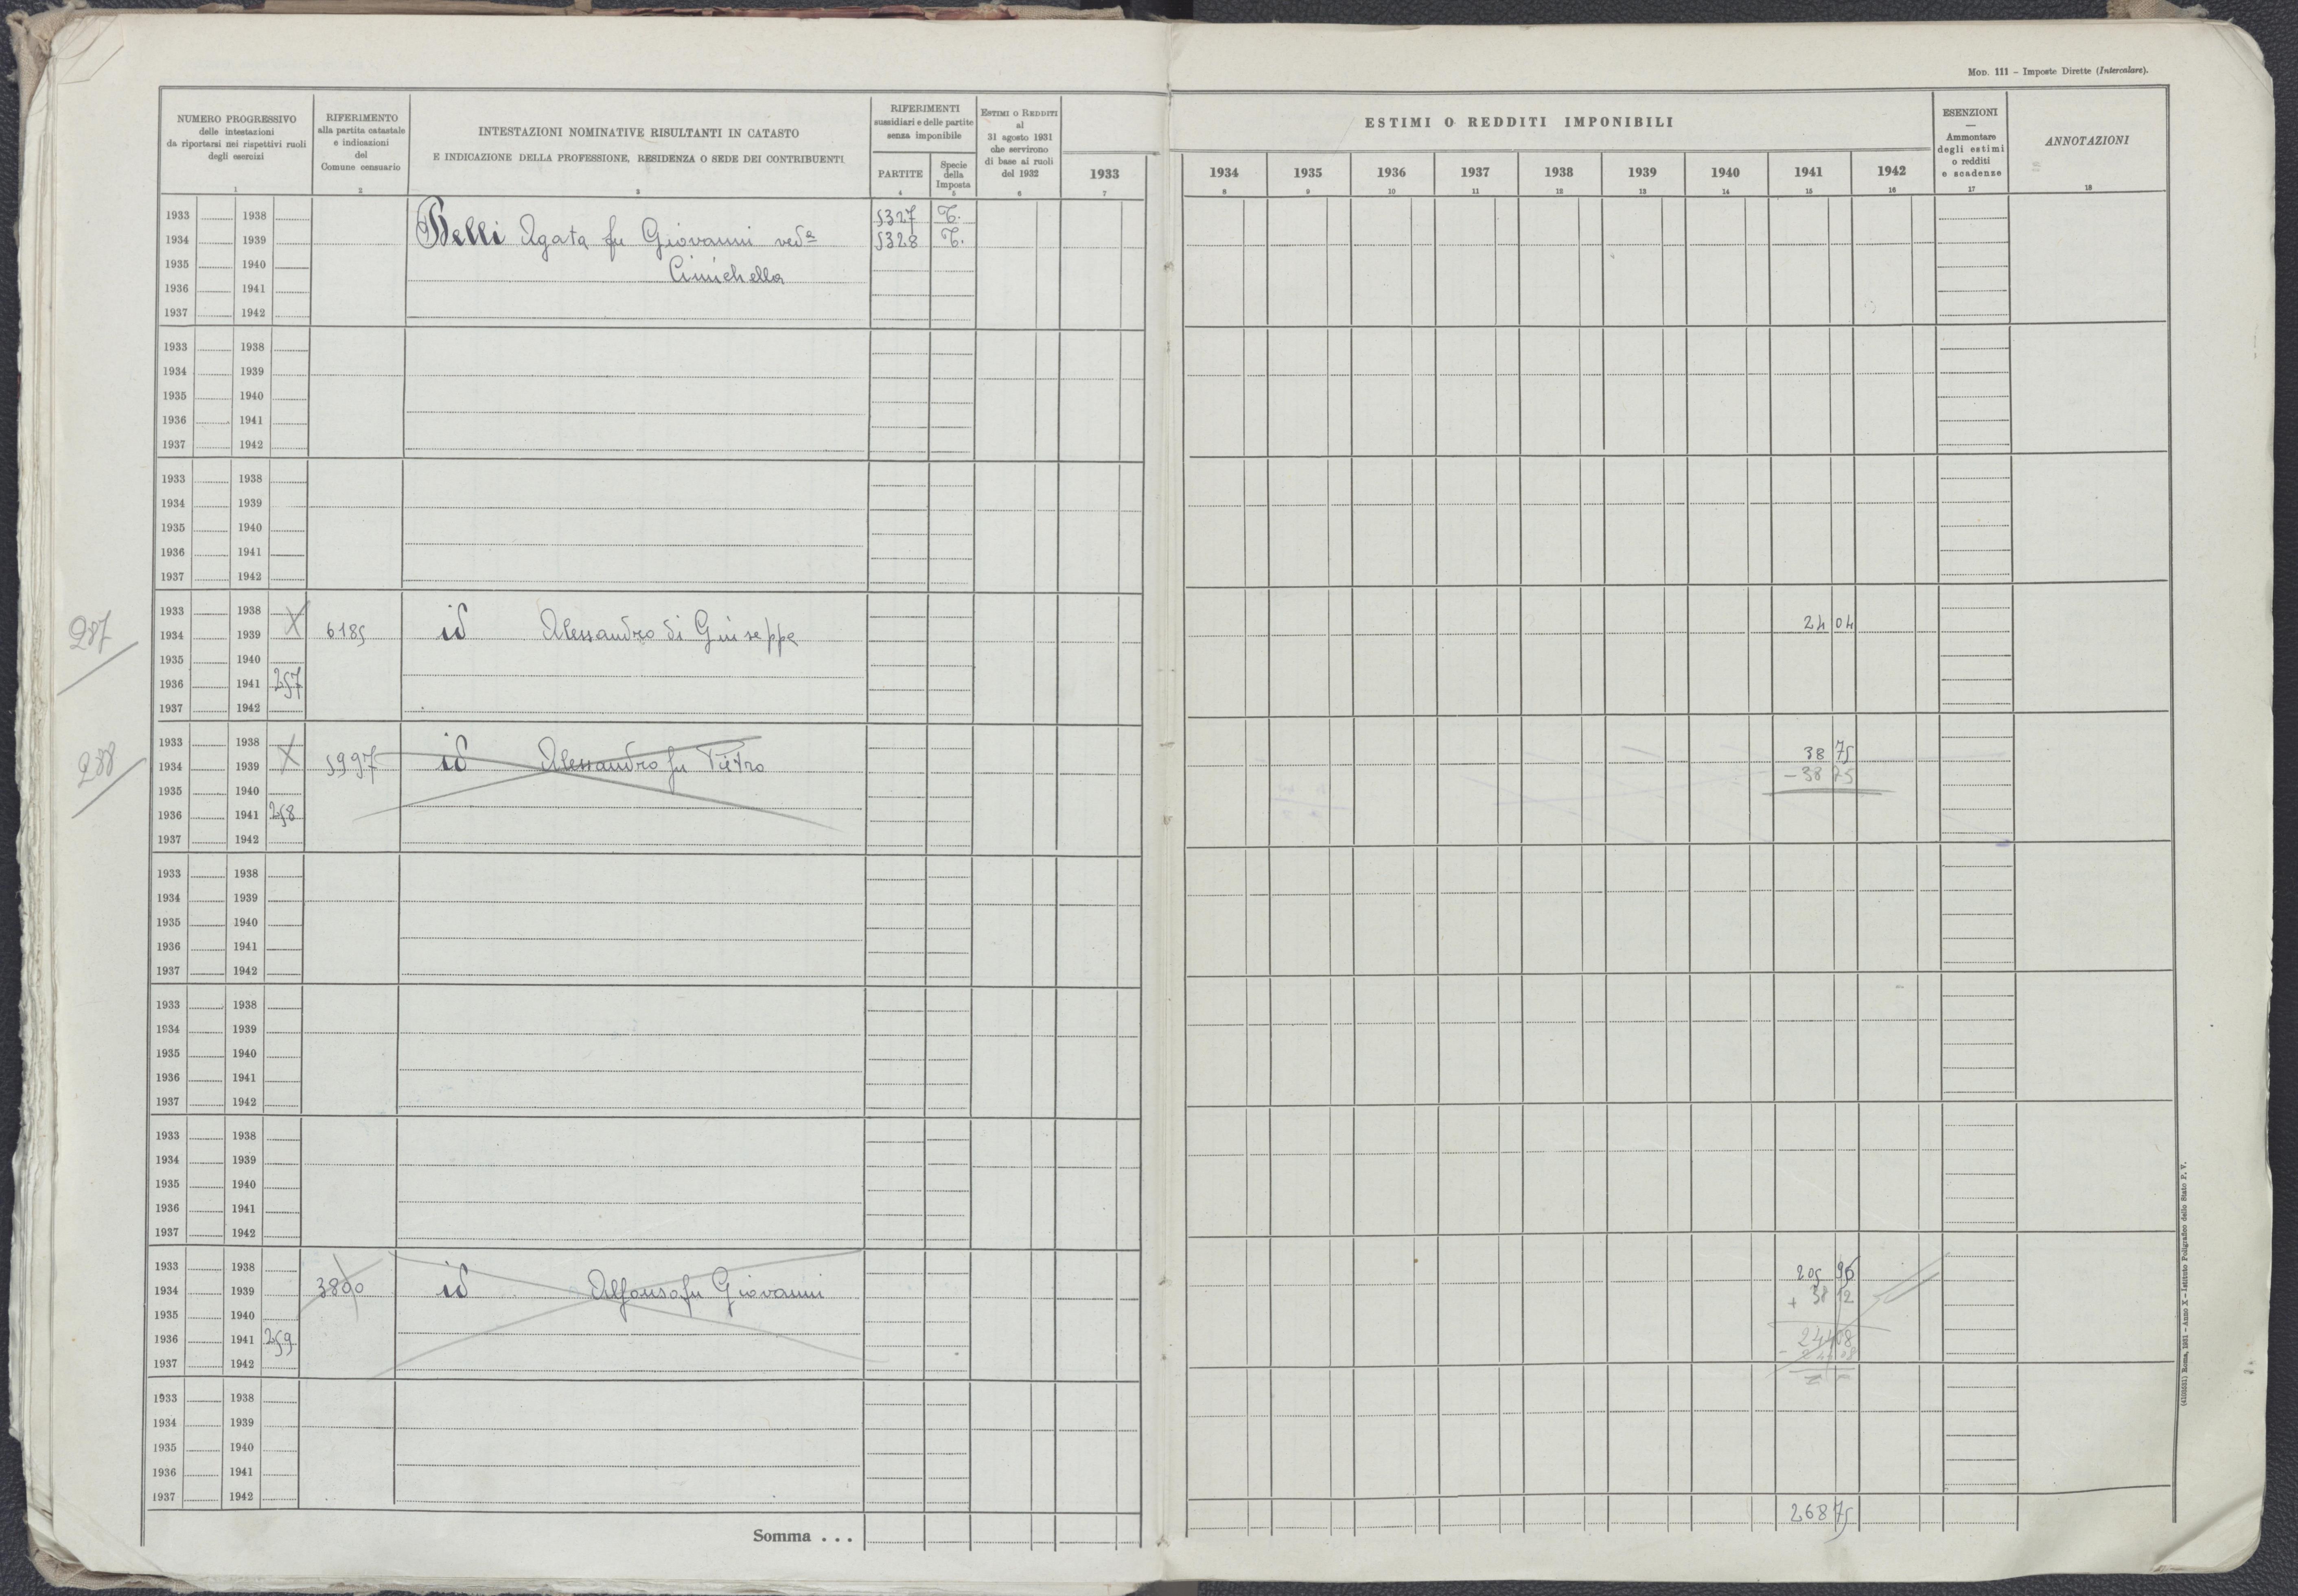 MOD. 111 – Imposte Dirette (Intercalare).
NUMERO PROGRESSIVO
delle intestazioni
da riportarsi nei rispettivi ruoli
degli esercizi
1
RIFERIMENTO
alla partita catastale
e indicazioni
del
Comune censuario
2
INTESTAZIONI NOMINATIVE RISULTANTI IN CATASTO
E INDICAZIONE DELLA PROFESSIONE, RESIDENZA O SEDE DEI CONTRIBUENTI
3
RIFERIMENTI
sussidiari e delle partite
senza imponibile
PARTITE
4
Specie
della
Imposta
5
ESTIMI O REDDITI
al
31 agosto 1931
che servirono
di base ai ruoli
del 1932
6
ESTIMI O REDDITI IMPONIBILI
1933 1934 1935 1936 1937 1938 1939 1940 1941 1942
7 8 9 10 11 12 13 14 15 16
ESENZIONI
—
Ammontare
degli estimi
o redditi
e scadenze
17
ANNOTAZIONI
18
1933 1938 5327 T.
1934 1939 Belli Agata fu Giovanni ved.a 5328 T.
1935 1940 Cimichella
1936 1941
1937 1942
1933 1938
1934 1939
1935 1940
1936 1941
1937 1942
1933 1938
1934 1939
1935 1940
1936 1941
1937 1942
287
1933 1938 X
1934 1939 6185 id Alessandro di Giuseppe 24 04
1935 1940
1936 1941 257
1937 1942
288
1933 1938 X 38 75
1934 1939 5997 id Alessandro fu Pietro – 38 75
1935 1940
1936 1941 258
1937 1942
1933 1938
1934 1939
1935 1940
1936 1941
1937 1942
1933 1938
1934 1939
1935 1940
1936 1941
1937 1942
1933 1938
1934 1939
1935 1940
1936 1941
1937 1942
1933 1938 205 96
1934 1939 3800 id Alfonso fu Giovanni + 38 12
1935 1940
1936 1941 259 244 08
1937 1942 – 244 08
1933 1938
1934 1939
1935 1940
1936 1941
1937 1942
Somma . . . 268 75
(4105531) Roma, 1931 – Anno X – Istituto Poligrafico dello Stato P. V.